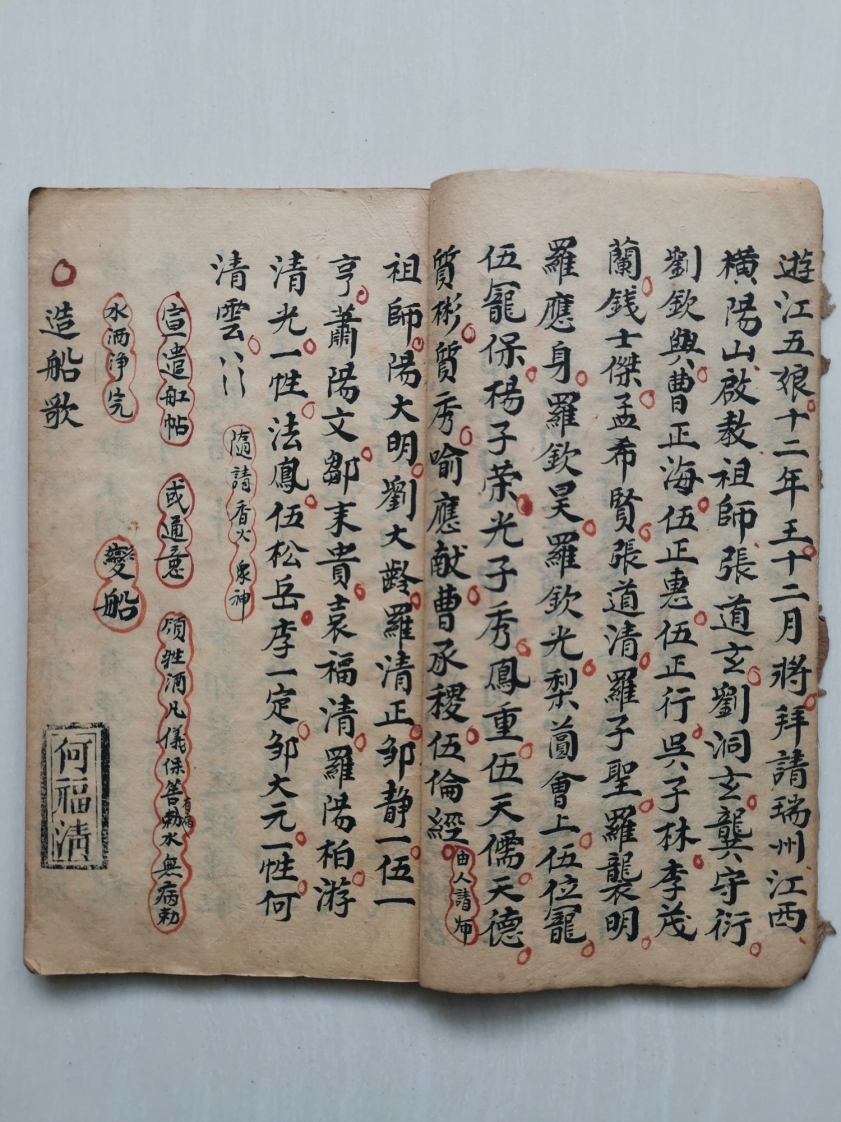 遊江五娘十二年王十二月將拜請瑞州江西
橫陽山啟教祖師張道玄劉洞玄龔守衍
劉欽興曹正海伍正惠伍正行吳子林李茂
蘭錢士傑孟希賢張道清羅子聖羅襲明
羅應身羅欽昊羅欽光梨蒀會上伍位寵
伍寵保楊子荣光子秀鳳重伍天儒天德
質彬質秀喻應献曹承稷伍倫經
由人請师
祖師陽大明劉大齡羅清正邹静一伍一
亨蕭陽文鄒末貴袁福清羅陽柏游
清光一性法鳳伍松岳李一定邹大元一性何
清雲
隨請香火衆神
宣遣舡帖 或通意 領牲酒凡儀保筶勅水無病勅
有病
水洒淨完 變船
造船歌
何福清